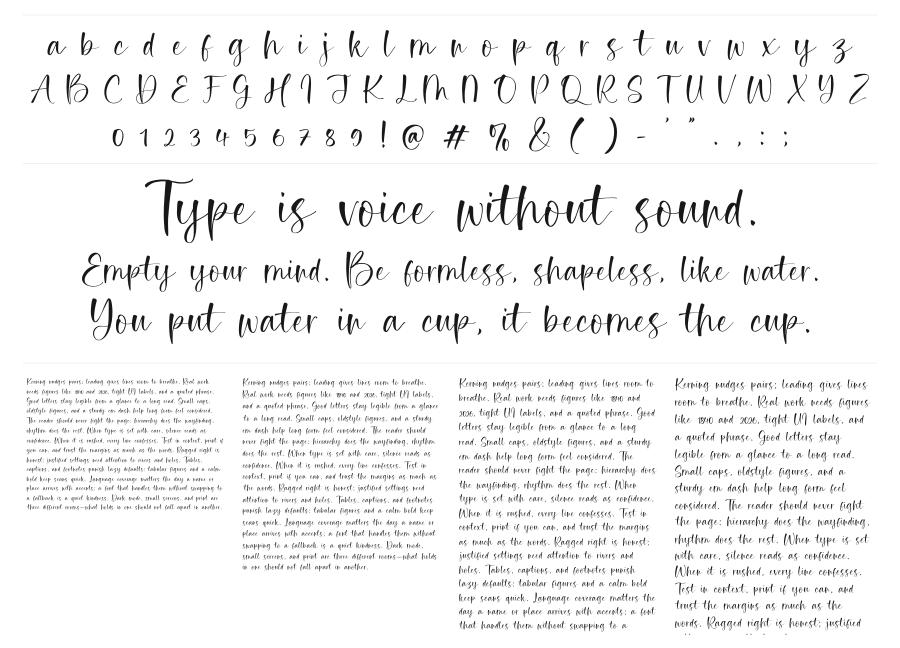 a b c d e f g h i j k l m n o p q r s t u v w x y z
A B C D E F G H I J K L M N O P Q R S T U V W X Y Z
0 1 2 3 4 5 6 7 8 9 ! @ # % & ( ) - ' " . , : ;
Type is voice without sound.
Empty your mind. Be formless, shapeless, like water.
You put water in a cup, it becomes the cup.
Kerning nudges pairs; leading gives lines room to breathe. Real work
needs figures like 1890 and 2026, tight UI labels, and a quoted phrase.
Good letters stay legible from a glance to a long read. Small caps,
oldstyle figures, and a sturdy em dash help long form feel considered.
The reader should never fight the page: hierarchy does the wayfinding,
rhythm does the rest. When type is set with care, silence reads as
confidence. When it is rushed, every line confesses. Test in context, print if
you can, and trust the margins as much as the words. Ragged right is
honest; justified settings need attention to rivers and holes. Tables,
captions, and footnotes punish lazy defaults; tabular figures and a calm
bold keep scans quick. Language coverage matters the day a name or
place arrives with accents; a font that handles them without swapping to
a fallback is a quiet kindness. Dark mode, small screens, and print are
three different rooms—what holds in one should not fall apart in another.
Kerning nudges pairs; leading gives lines room to breathe.
Real work needs figures like 1890 and 2026, tight UI labels,
and a quoted phrase. Good letters stay legible from a glance
to a long read. Small caps, oldstyle figures, and a sturdy
em dash help long form feel considered. The reader should
never fight the page: hierarchy does the wayfinding, rhythm
does the rest. When type is set with care, silence reads as
confidence. When it is rushed, every line confesses. Test in
context, print if you can, and trust the margins as much as
the words. Ragged right is honest; justified settings need
attention to rivers and holes. Tables, captions, and footnotes
punish lazy defaults; tabular figures and a calm bold keep
scans quick. Language coverage matters the day a name or
place arrives with accents; a font that handles them without
swapping to a fallback is a quiet kindness. Dark mode,
small screens, and print are three different rooms—what holds
in one should not fall apart in another.
Kerning nudges pairs; leading gives lines room to
breathe. Real work needs figures like 1890 and
2026, tight UI labels, and a quoted phrase. Good
letters stay legible from a glance to a long
read. Small caps, oldstyle figures, and a sturdy
em dash help long form feel considered. The
reader should never fight the page: hierarchy does
the wayfinding, rhythm does the rest. When
type is set with care, silence reads as confidence.
When it is rushed, every line confesses. Test in
context, print if you can, and trust the margins
as much as the words. Ragged right is honest;
justified settings need attention to rivers and
holes. Tables, captions, and footnotes punish
lazy defaults; tabular figures and a calm bold
keep scans quick. Language coverage matters the
day a name or place arrives with accents; a font
that handles them without swapping to a
Kerning nudges pairs; leading gives lines
room to breathe. Real work needs figures
like 1890 and 2026, tight UI labels, and
a quoted phrase. Good letters stay
legible from a glance to a long read.
Small caps, oldstyle figures, and a
sturdy em dash help long form feel
considered. The reader should never fight
the page: hierarchy does the wayfinding,
rhythm does the rest. When type is set
with care, silence reads as confidence.
When it is rushed, every line confesses.
Test in context, print if you can, and
trust the margins as much as the
words. Ragged right is honest; justified